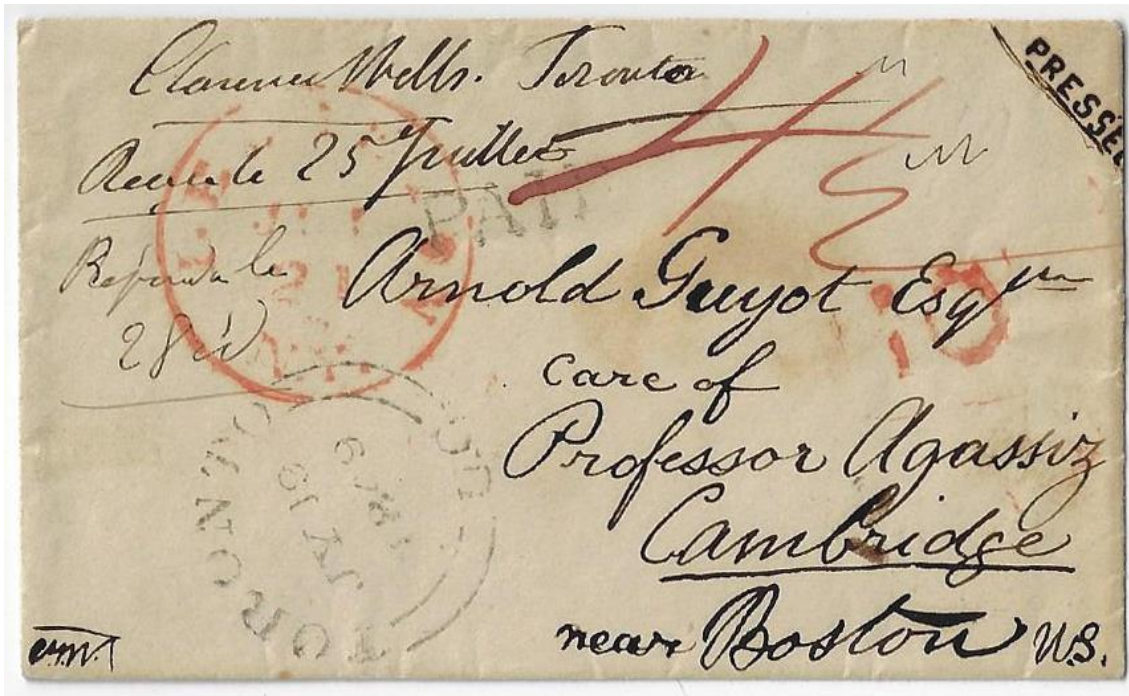 Clarence Wells. Toronto
PRESSÉE
Reçue le 25 Juillet
PAID
Répondu le
28 id
Arnold Guyot Esqre
10
care of
Professor Agassiz
Cambridge
near Boston U.S.
TORONTO
JY 19
1849